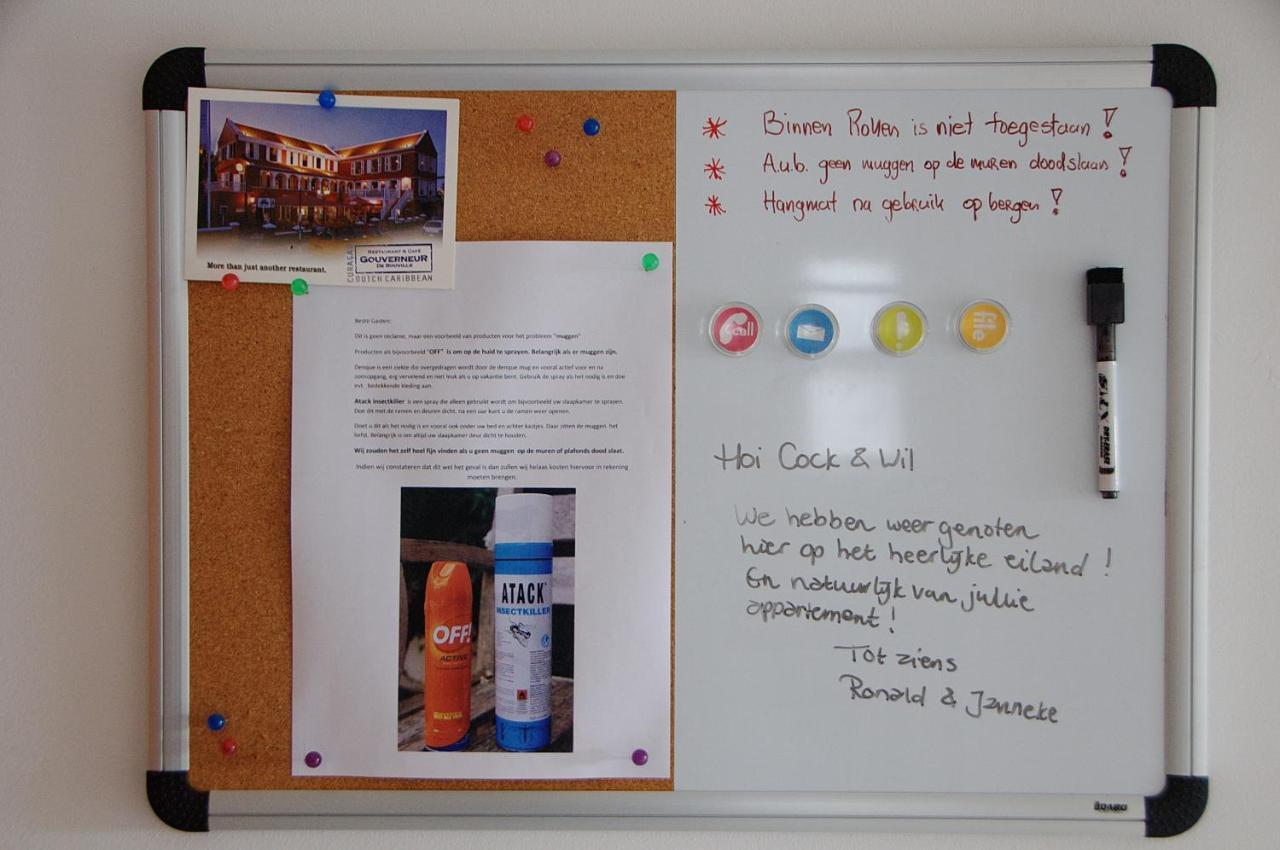 More than just another restaurant.
CURAÇAO
RESTAURANT & CAFÉ
GOUVERNEUR
DE ROUVILLE
DUTCH CARIBBEAN
Beste Gasten:
Dit is geen reclame, maar een voorbeeld van producten voor het probleem "muggen"
Producten als bijvoorbeeld "OFF" is om op de huid te sprayen. Belangrijk als er muggen zijn.
Denque is een ziekte die overgedragen wordt door de denque mug en vooral actief voor en na
zonsopgang, erg vervelend en niet leuk als u op vakantie bent. Gebruik de spray als het nodig is en doe
evt. bedekkende kleding aan.
Atack insectkiller is een spray die alleen gebruikt wordt om bijvoorbeeld uw slaapkamer te sprayen.
Doe dit met de ramen en deuren dicht, na een uur kunt u de ramen weer openen.
Doet u dit als het nodig is en vooral ook onder uw bed en achter kastjes. Daar zitten de muggen het
liefst. Belangrijk is om altijd uw slaapkamer deur dicht te houden.
Wij zouden het zelf heel fijn vinden als u geen muggen op de muren of plafonds dood slaat.
Indien wij constateren dat dit wel het geval is dan zullen wij helaas kosten hiervoor in rekening
moeten brengen.
OFF!
ACTIVE
ATACK
INSECTKILLER
* Binnen Roken is niet toegestaan!
* A.u.b. geen muggen op de muren doodslaan!
* Hangmat na gebruik opbergen!
call
file
Hoi Cock & Wil
We hebben weer genoten
hier op het heerlijke eiland!
En natuurlijk van jullie
appartement!
Tot ziens
Ronald & Janneke